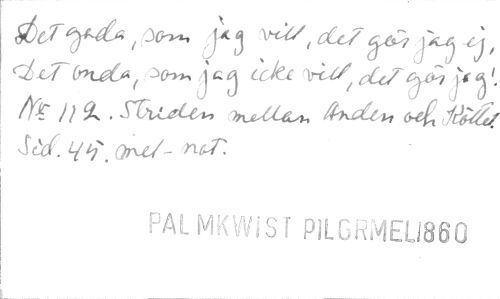 Det goda, som jag vill, det gör jag ej,
Det onda, som jag icke vill, det gör jag!
No 112. Striden mellan Anden och Köttet.
Sid. 45. mel-not.
PALMKWIST PILGRMEL1860